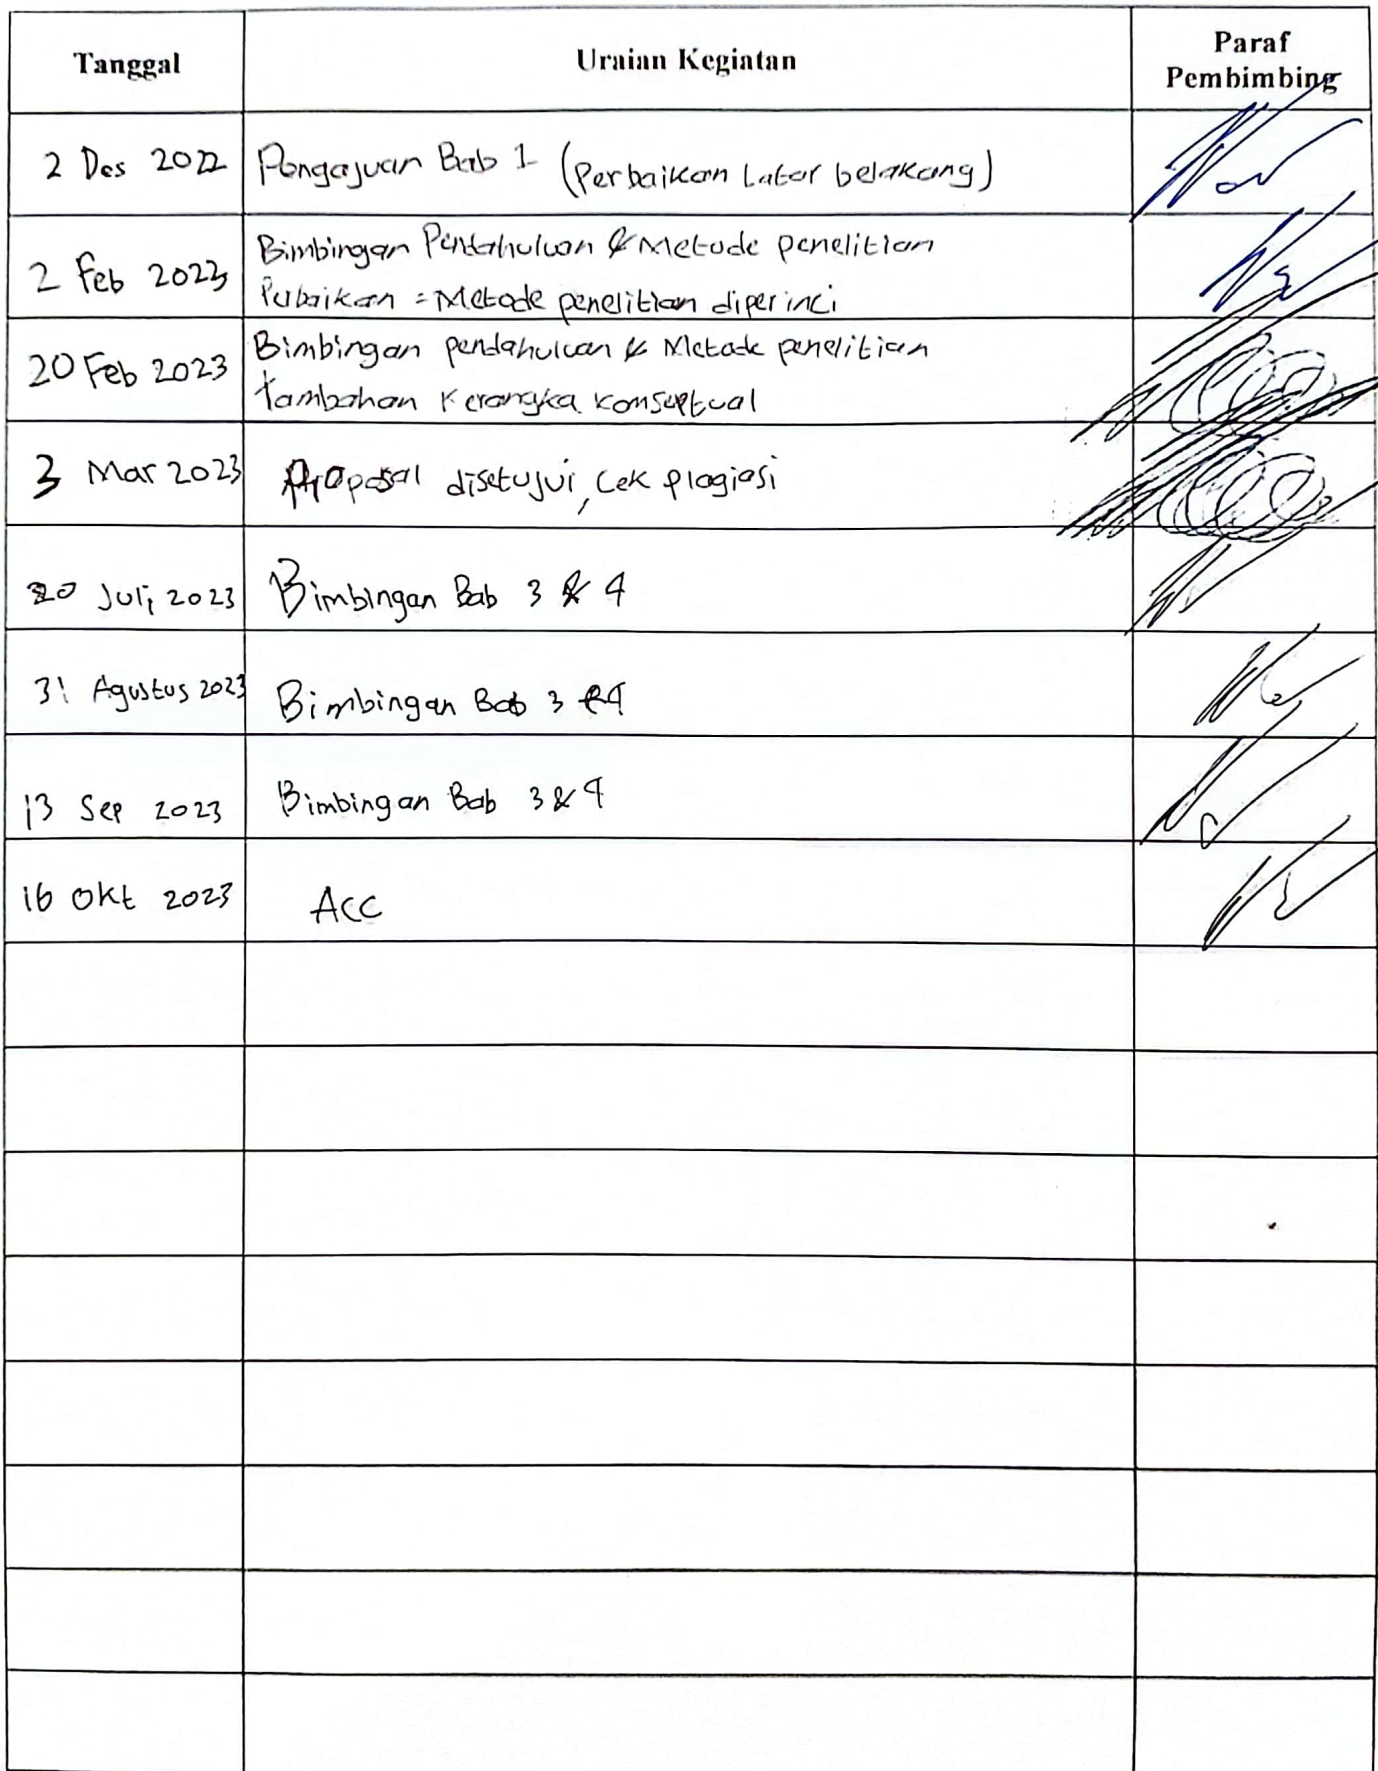 Tanggal
Uraian Kegiatan
Paraf
Pembimbing
2 Des 2022
Pengajuan Bab 1 (Perbaikan Latar belakang)
2 Feb 2023
Bimbingan Pendahuluan & Metode penelitian
Perbaikan = Metode penelitian diperinci
20 Feb 2023
Bimbingan pendahuluan & Metode penelitian
tambahan Kerangka konseptual
3 Mar 2023
Proposal disetujui, Cek plagiasi
20 Juli 2023
Bimbingan Bab 3 & 4
31 Agustus 2023
Bimbingan Bab 3 & 4
13 Sep 2023
Bimbingan Bab 3 & 4
16 Okt 2023
Acc